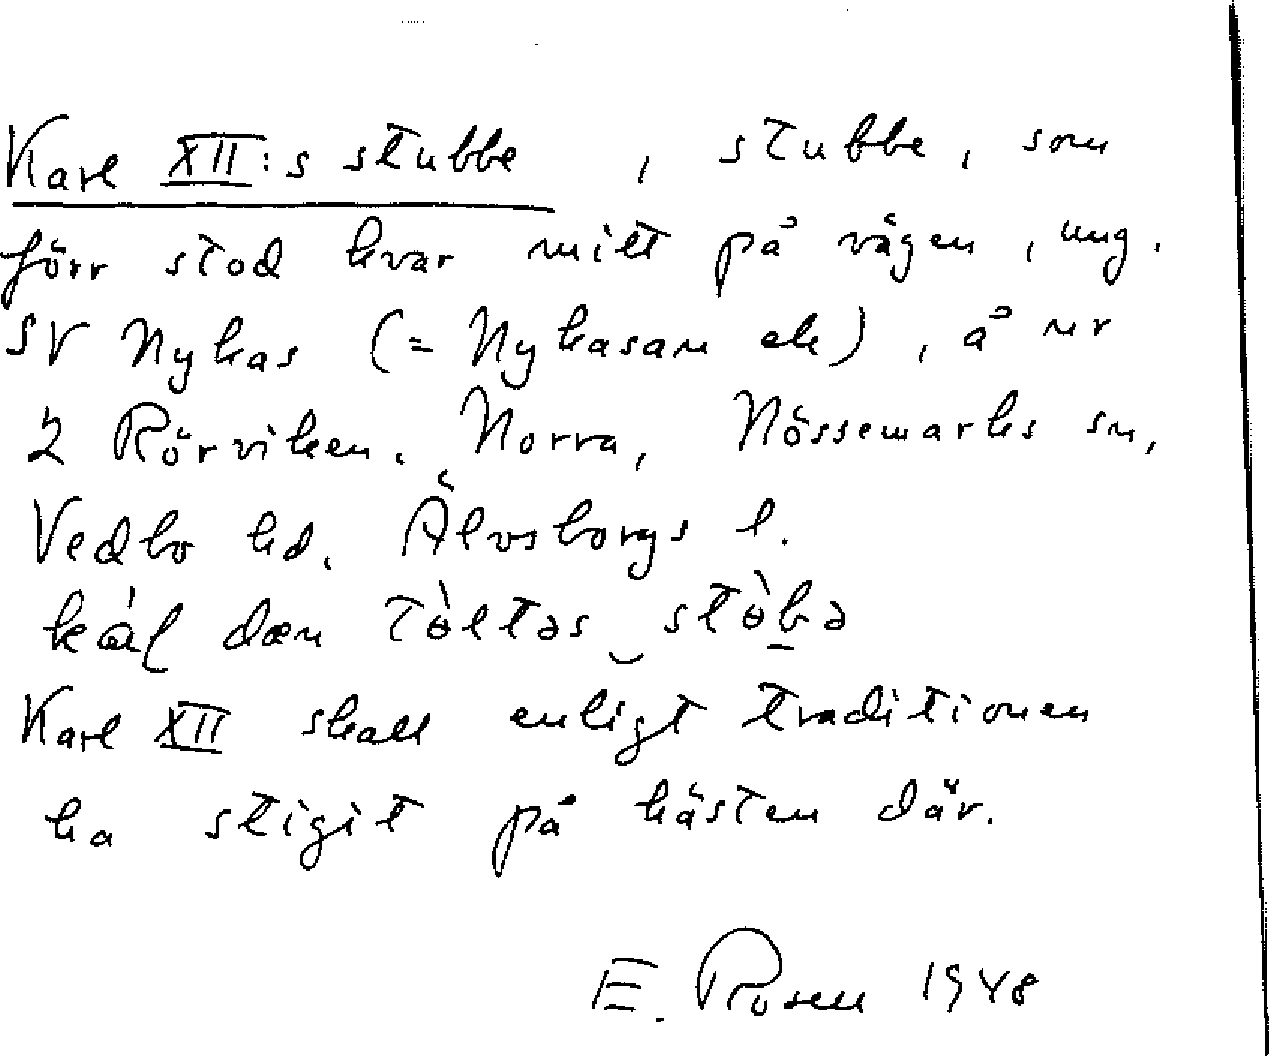 Karl XII:s stubbe , stubbe, som
förr stod kvar mitt på vägen, ung.
SV Nykas (= Nykasan ek), å nr
2 Rörviken. Norra, Nössemarks sn,
Vedbo hd. Älvsborgs l.
dæn
Karl XII skall enligt traditionen
ha stigit på hästen där.
E. Rosen 1948